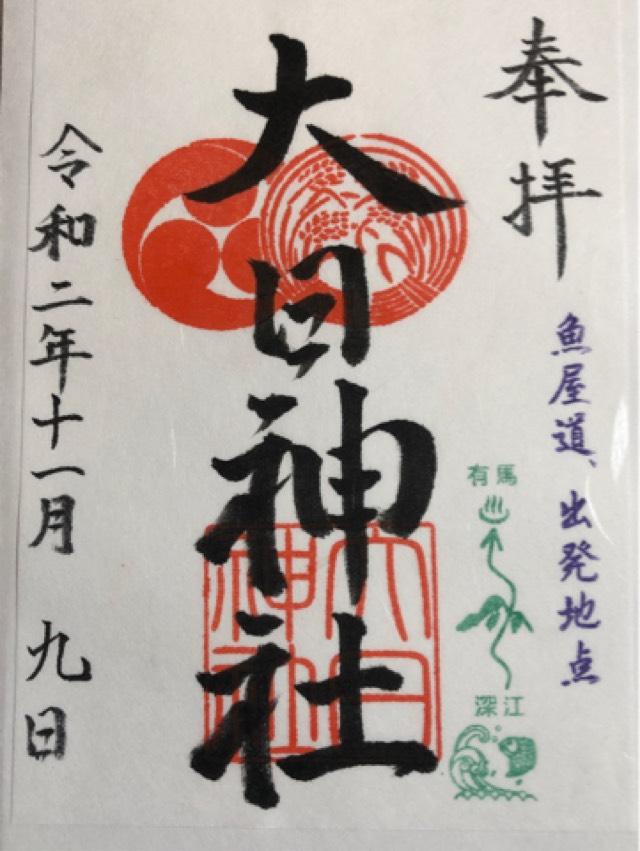 奉拝
魚屋道、出発地点
大日神社
大日
神社
有馬
深江
令和二年十一月 九日